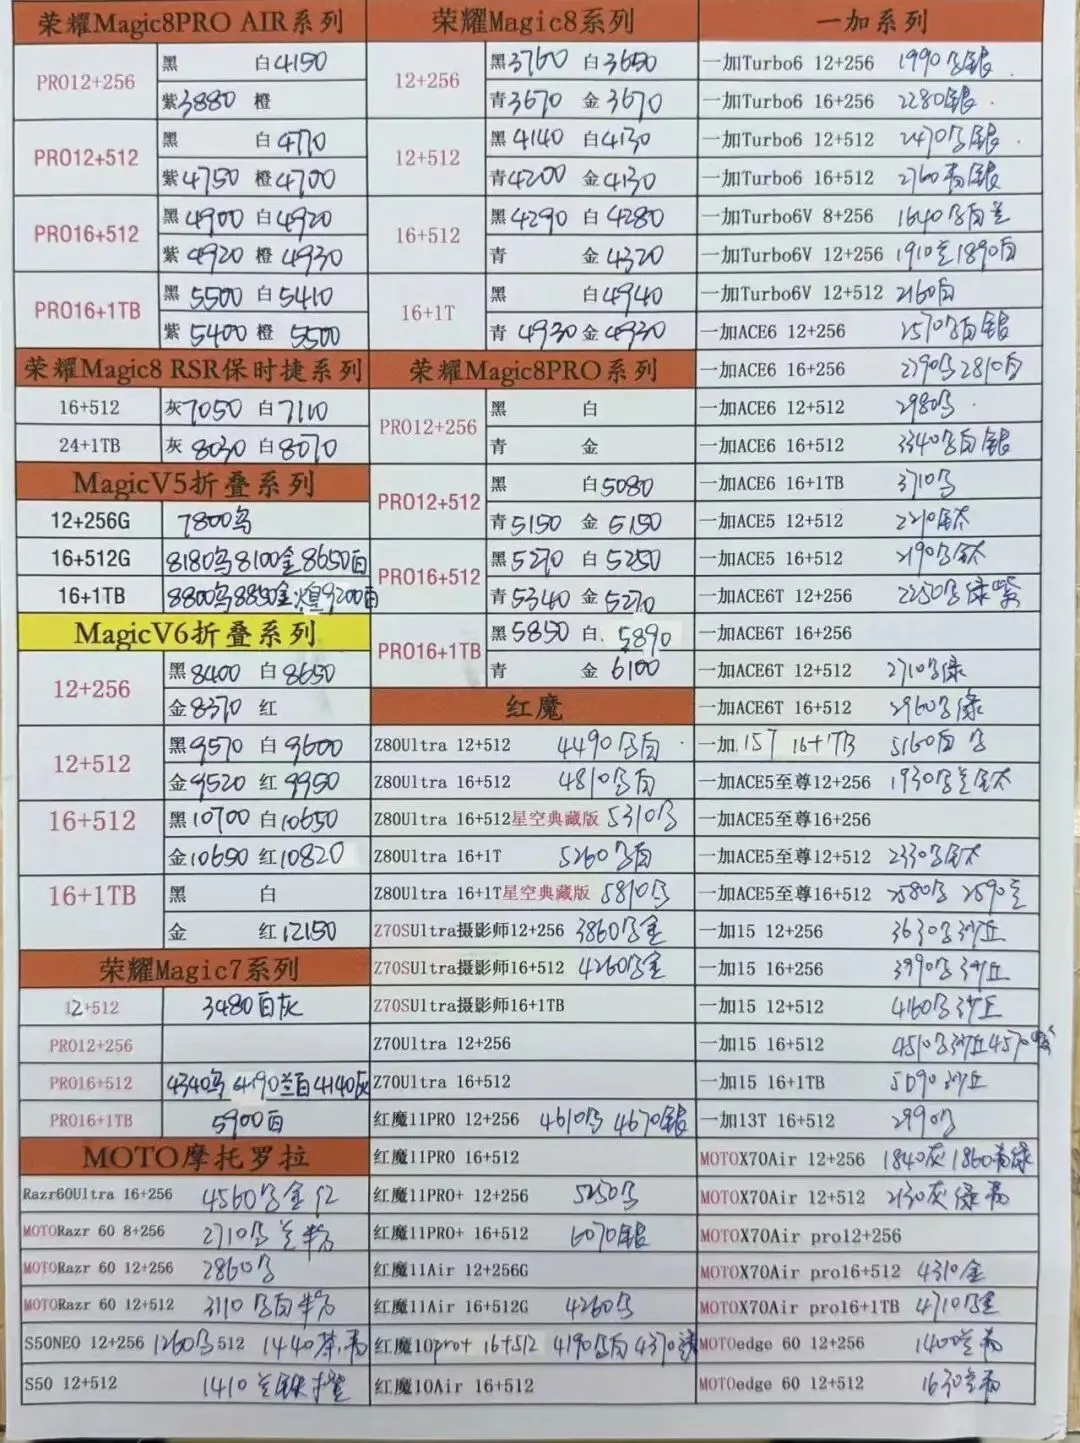 荣耀Magic8PRO AIR系列
PRO12+256
黑 白4150
紫3880 橙
PRO12+512
黑 白4770
紫4750 橙4700
PRO16+512
黑4900 白4920
紫4920 橙4930
PRO16+1TB
黑5500 白5410
紫5400 橙5500
荣耀Magic8 RSR保时捷系列
16+512 灰7050 白7110
24+1TB 灰8030 白8070
MagicV5折叠系列
12+256G 7800乌
16+512G 8180乌8100金8650白
16+1TB 8800乌8850金 9200白
MagicV6折叠系列
12+256
黑8400 白8650
金8370 红
12+512
黑9570 白9600
金9520 红9950
16+512
黑10700 白10650
金10650 红10820
16+1TB
黑 白
金 红12150
荣耀Magic7系列
12+512 3480白灰
PRO12+256
PRO16+512 4340乌 4190兰白4140灰
PRO16+1TB 5900白
MOTO摩托罗拉
Razr60Ultra 16+256 4560乌金红
MOTORazr 60 8+256 2710乌兰
MOTORazr 60 12+256 2860乌
MOTORazr 60 12+512 3110乌白
S50NEO 12+256 1260乌 512 1440茶.青
S50 12+512 1410兰
荣耀Magic8系列
12+256
黑3760 白3650
青3670 金3670
12+512
黑4140 白4130
青4200 金4130
16+512
黑4290 白4280
青 金4320
16+1T
黑 白4940
青4930 金4930
荣耀Magic8PRO系列
PRO12+256
黑 白
青 金
PRO12+512
黑 白5080
青5150 金5150
PRO16+512
黑5270 白5250
青5340 金5270
PRO16+1TB
黑5850 白5890
青 金6100
红魔
Z80Ultra 12+512 4490乌白
Z80Ultra 16+512 4810乌白
Z80Ultra 16+512星空典藏版 5310乌
Z80Ultra 16+1T 5260乌白
Z80Ultra 16+1T星空典藏版 5810乌
Z70SUltra摄影师12+256 3860乌金
Z70SUltra摄影师16+512 4260乌金
Z70SUltra摄影师16+1TB
Z70Ultra 12+256
Z70Ultra 16+512
红魔11PRO 12+256 4610乌 4670银
红魔11PRO 16+512
红魔11PRO+ 12+256 5250乌
红魔11PRO+ 16+512 6070银
红魔11Air 12+256G
红魔11Air 16+512G 4260乌
红魔10pro+ 16+512 4190乌白 4370
红魔10Air 16+512
一加系列
一加Turbo6 12+256 1990乌银
一加Turbo6 16+256 2280银
一加Turbo6 12+512 2470乌银
一加Turbo6 16+512 2760 银
一加Turbo6V 8+256 1640乌白兰
一加Turbo6V 12+256 1910兰1890白
一加Turbo6V 12+512 2160白
一加ACE6 12+256 2570乌白银
一加ACE6 16+256 2790乌2810白
一加ACE6 12+512 2980乌
一加ACE6 16+512 3340乌白银
一加ACE6 16+1TB 3710乌
一加ACE5 12+512 2210钛
一加ACE5 16+512 2190乌钛
一加ACE6T 12+256 2250乌绿紫
一加ACE6T 16+256
一加ACE6T 12+512 2710乌绿
一加ACE6T 16+512 2960乌绿
一加 15T 16+1TB 5160白 乌
一加ACE5至尊12+256 1930乌兰钛
一加ACE5至尊16+256
一加ACE5至尊12+512 2330乌钛
一加ACE5至尊16+512 2580乌 2590兰
一加15 12+256 3630乌沙丘
一加15 16+256 3990乌沙丘
一加15 12+512 4160乌沙丘
一加15 16+512 4510乌沙丘4570紫
一加15 16+1TB 5090沙丘
一加13T 16+512 2990乌
MOTOX70Air 12+256 1840灰 1860青绿
MOTOX70Air 12+512 2130灰绿青
MOTOX70Air pro12+256
MOTOX70Air pro16+512 4310金
MOTOX70Air pro16+1TB 4710乌金
MOTOedge 60 12+256 1400兰青
MOTOedge 60 12+512 1630兰青